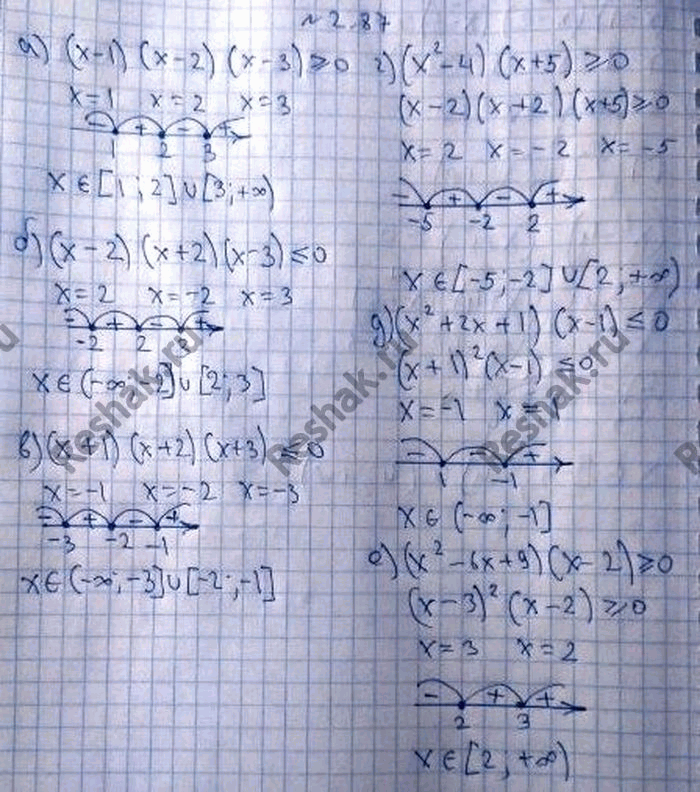 № 2.87
а) (x-1) (x-2) (x-3) ≥ 0
x=1 x=2 x=3
- + - +
1 2 3
x ∈ [1; 2] ∪ [3; +∞)
б) (x-2) (x+2) (x-3) ≤ 0
x=2 x=-2 x=3
- + - +
-2 2 3
x ∈ (-∞; -2] ∪ [2; 3]
в) (x+1) (x+2) (x+3) ≤ 0
x=-1 x=-2 x=-3
- + - +
-3 -2 -1
x ∈ (-∞; -3] ∪ [-2; -1]
г) (x²-4) (x+5) ≥ 0
(x-2) (x+2) (x+5) ≥ 0
x=2 x=-2 x=-5
- + - +
-5 -2 2
x ∈ [-5; -2] ∪ [2; +∞)
д) (x²+2x+1) (x-1) ≤ 0
(x+1)² (x-1) ≤ 0
x=-1 x=1
- - +
1 -1
x ∈ (-∞; -1]
е) (x²-6x+9) (x-2) ≥ 0
(x-3)² (x-2) ≥ 0
x=3 x=2
- + +
2 3
x ∈ [2; +∞)
Reshak.ru
Reshak.ru
Reshak.ru